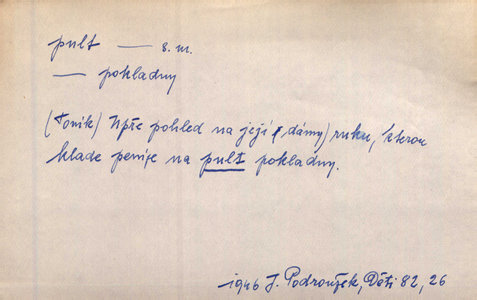 pult — s. m.
— pokladny
(Toník) Upře pohled na její (dámy) ruku, kterou
klade peníze na pult pokladny.
1946 J. Podroužek, Děti 82, 26